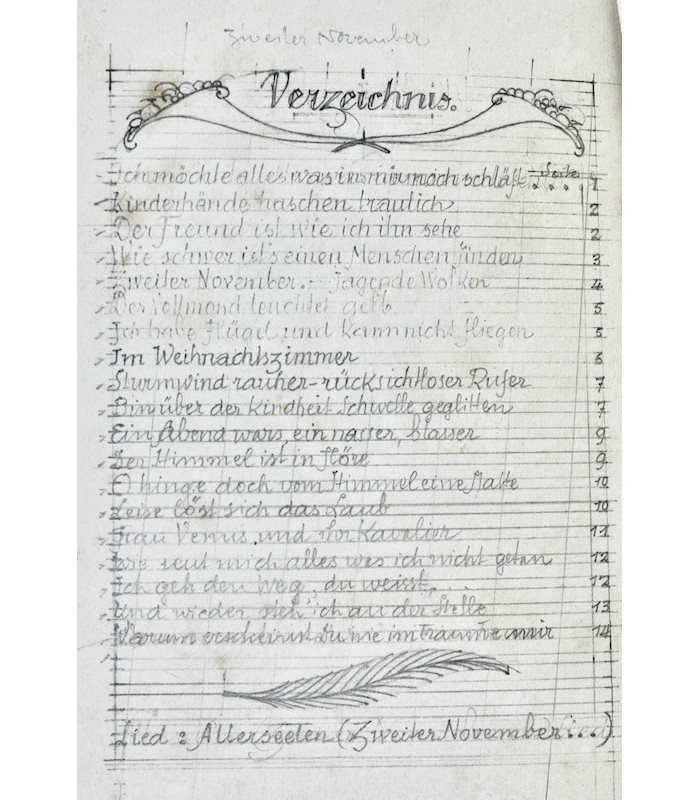 Zweiter November
Verzeichnis.
Ich möchte alles was in mir noch schläft Seite 1
Kinderhände haschen traulich 2
Der Freund ist wie ich ihn sehe 2
Wie schwer ist's einen Menschen finden 3
Zweiter November. - Jagende Wolken 4
Der Vollmond leuchtet gelb 5
Ich habe Flügel und kann nicht fliegen 5
Im Weihnachtszimmer 6
Sturmwind rauher-rücksichtloser Rufer 7
Bin über der Kindheit Schwelle geglitten 7
Ein Abend wars, ein nasser, blasser 9
Der Himmel ist in Flöre 9
O hinge doch vom Himmel eine Matte 10
Leise löst sich das Laub 10
Frau Venus und ihr Kavalier 11
Wie reut mich alles was ich nicht getan 12
Ich geh den Weg, du weisst, 12
Und wieder steh ich an der Stelle 13
Warum erscheinst Du nie im Traume mir 14
Lied : Allerseelen (Zweiter November...)